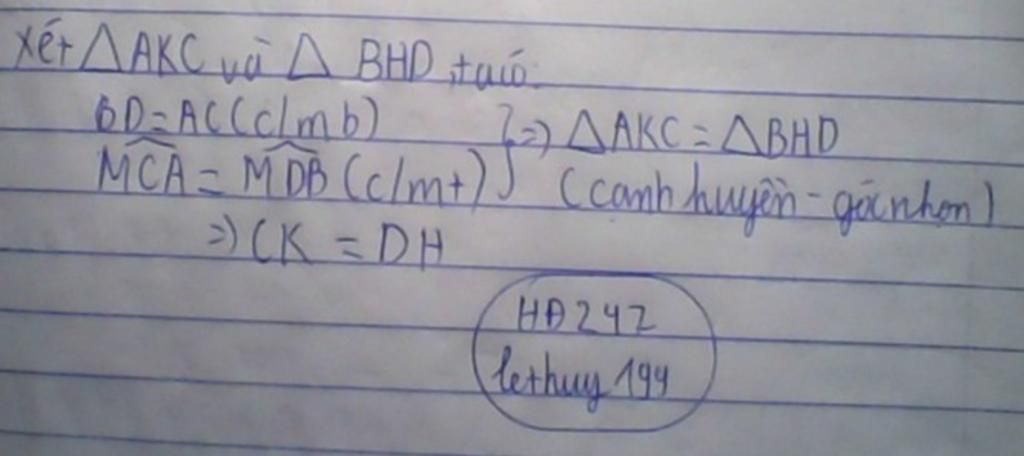 Xét △AKC và △ BHD, ta có:
BD = AC (c/m b)
} => △AKC = △BHD
MCA = MDB (c/mt)
(cạnh huyền - góc nhọn)
=> CK = DH
HĐ247
lethuy194